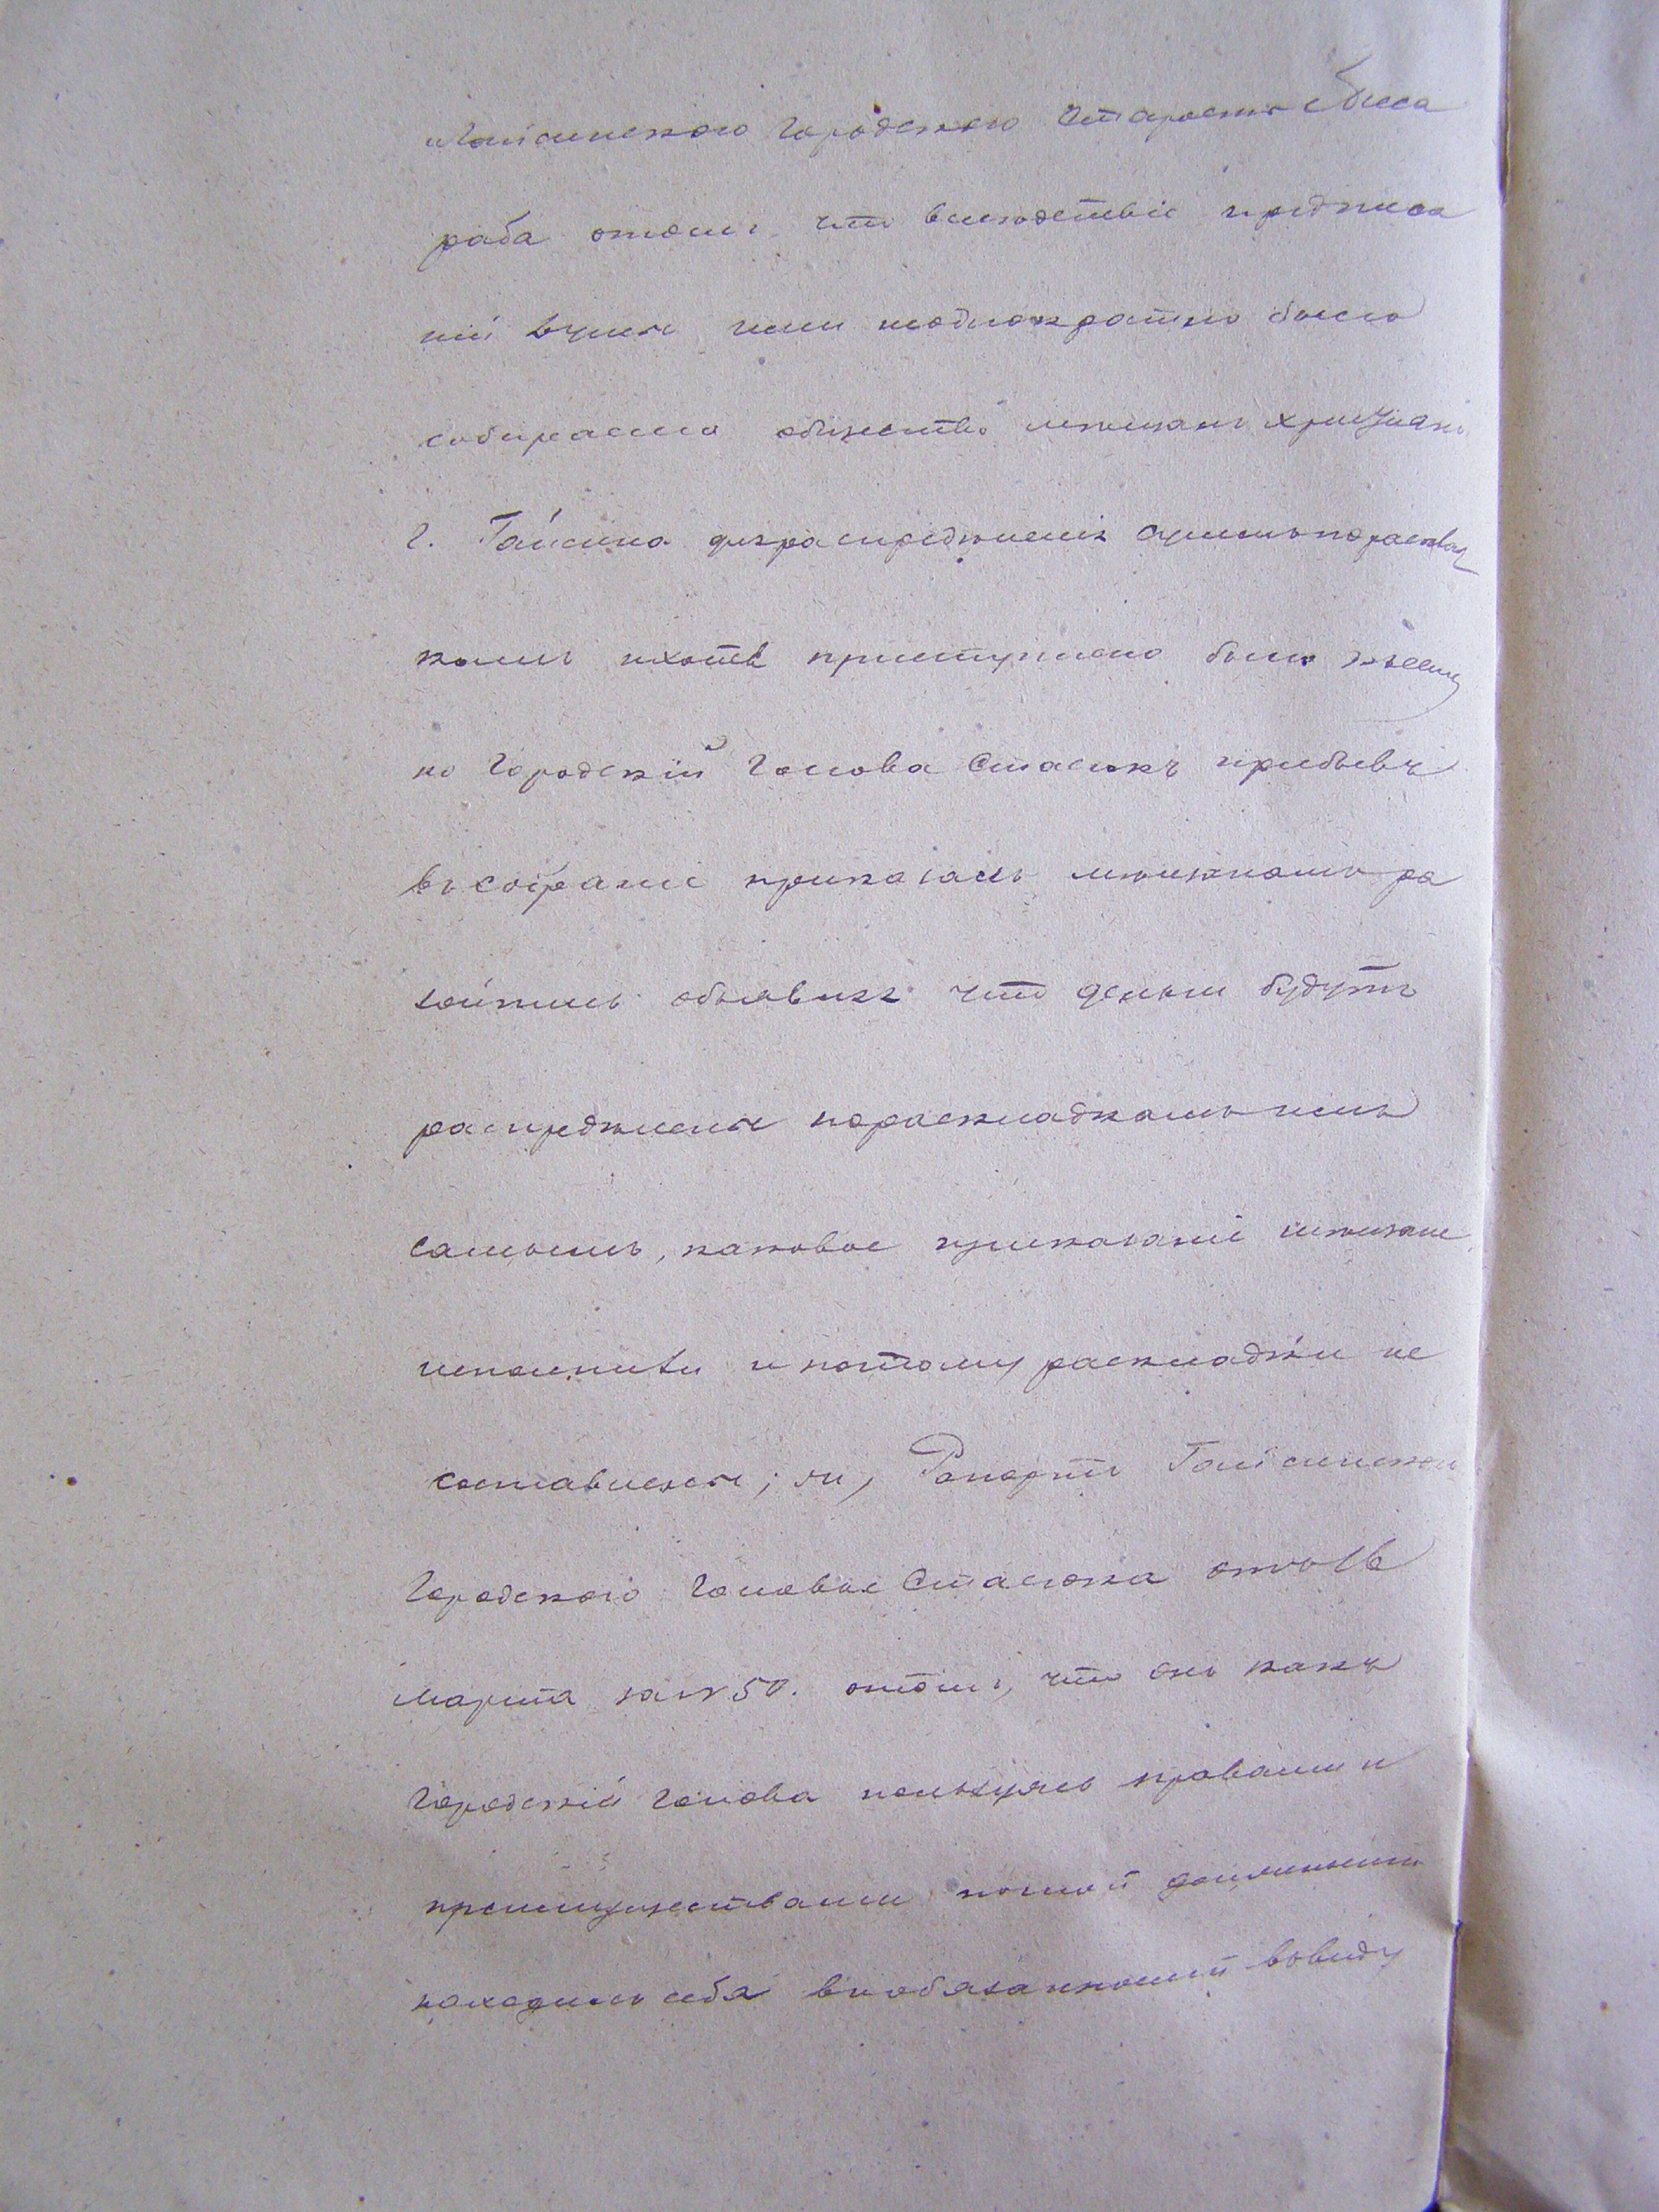 Гайсинского Городского Старосты
раба отомъ, что вслѣдствіе предписа
ній Думы ими неоднократно было
собираемо общество мѣщанъ христіанъ
г. Гайсина для распредѣленія суммъ по расклад
камъ и хотя приступлено было къ сему
но Городскій Голова Стасюкъ прибывъ
въ собраніе приказалъ мѣщанамъ ра
зойтись объявивъ что деньги будутъ
распредѣлены по раскладкамъ имъ
самымъ, каковое приказаніе мѣщане
исполнили и потому раскладки не
составлены; Рапортъ Гайсинского
Городского Головы Стасюка отъ 16
Марта за № 50. отомъ, что онъ какъ
Городскій Голова пользуясь правами и
преимуществами по должности
находилъ себя въ обязанности ввиду